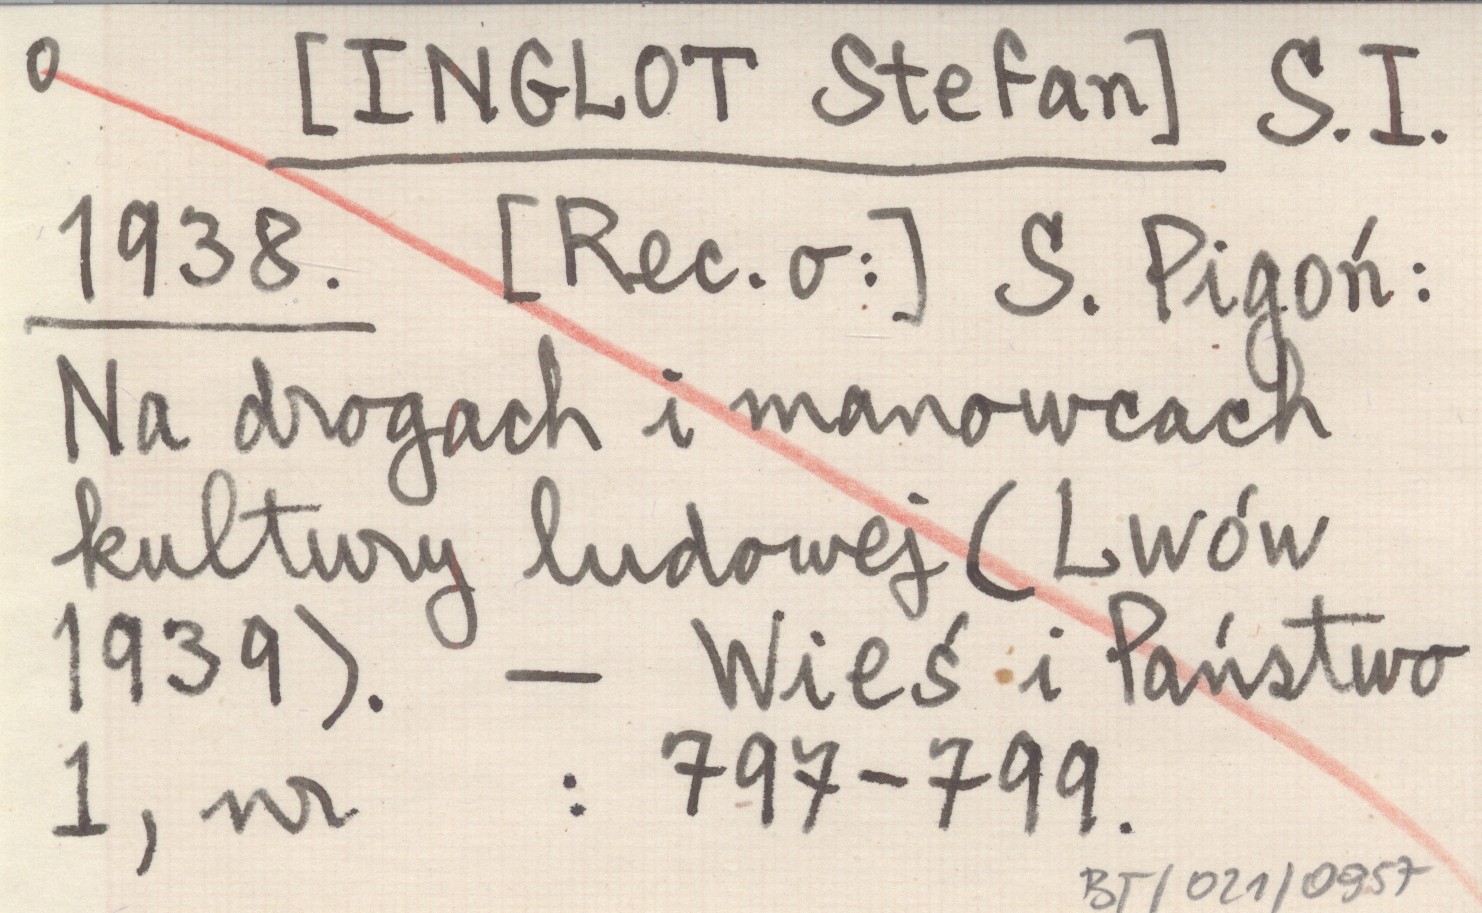 o [INGLOT Stefan] S.I.
1938. [Rec. o:] S. Pigoń:
Na drogach i manowcach
kultury ludowej (Lwów
1939). — Wieś i Państwo
1, nr : 797-799.
BT/021/0957